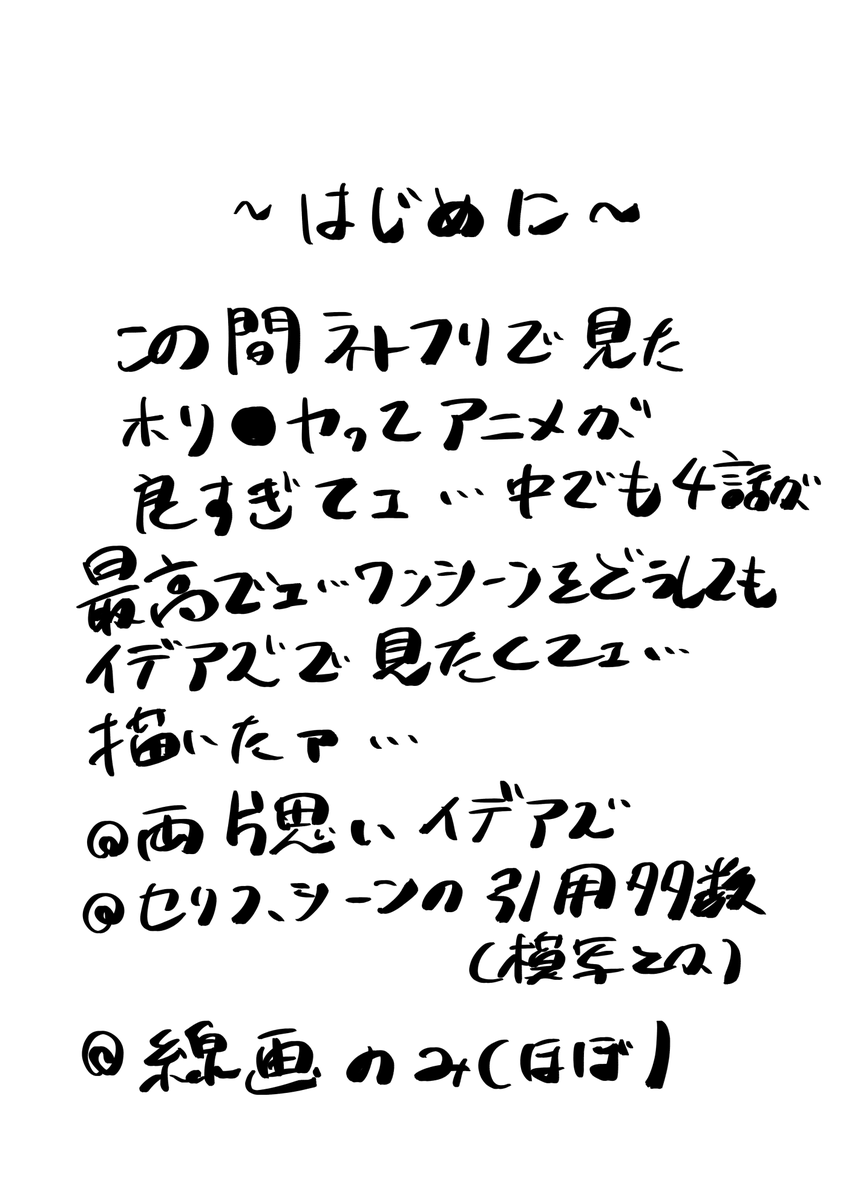 ~はじめに~
この間ネトフリで見た
ホリ●ヤってアニメが
良すぎてェ…中でも4話が
最高でェ…ワンシーンをどうしても
イデアズで見たくてェ…
描いたァ…
◎両片思いイデアズ
◎セリフ、シーンの引用多数
(模写とかx)
◎線画のみ(ほぼ)